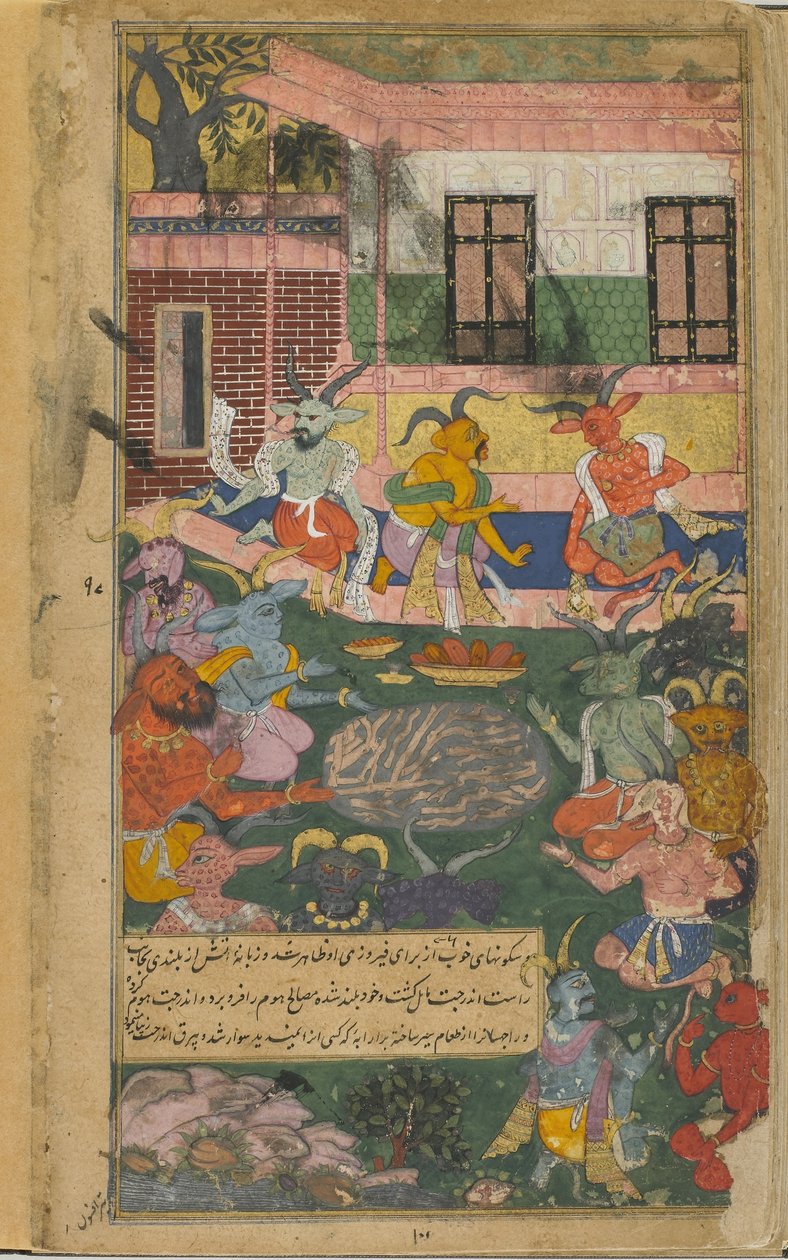 و سکونهای خوب از برای فیروزی او ظاهر شد و زبانهٔ آتش از بلندی بجانب
راست اندرجت مایل گشت و خود بلند شده مصالح هوم را فرو برد و اندرجت هوم کرده
و را جهسانرا از طعام سیر ساخته بر ارابهٔ که کسی آنرا نمیدید سوار شد و بیرق اندرجت